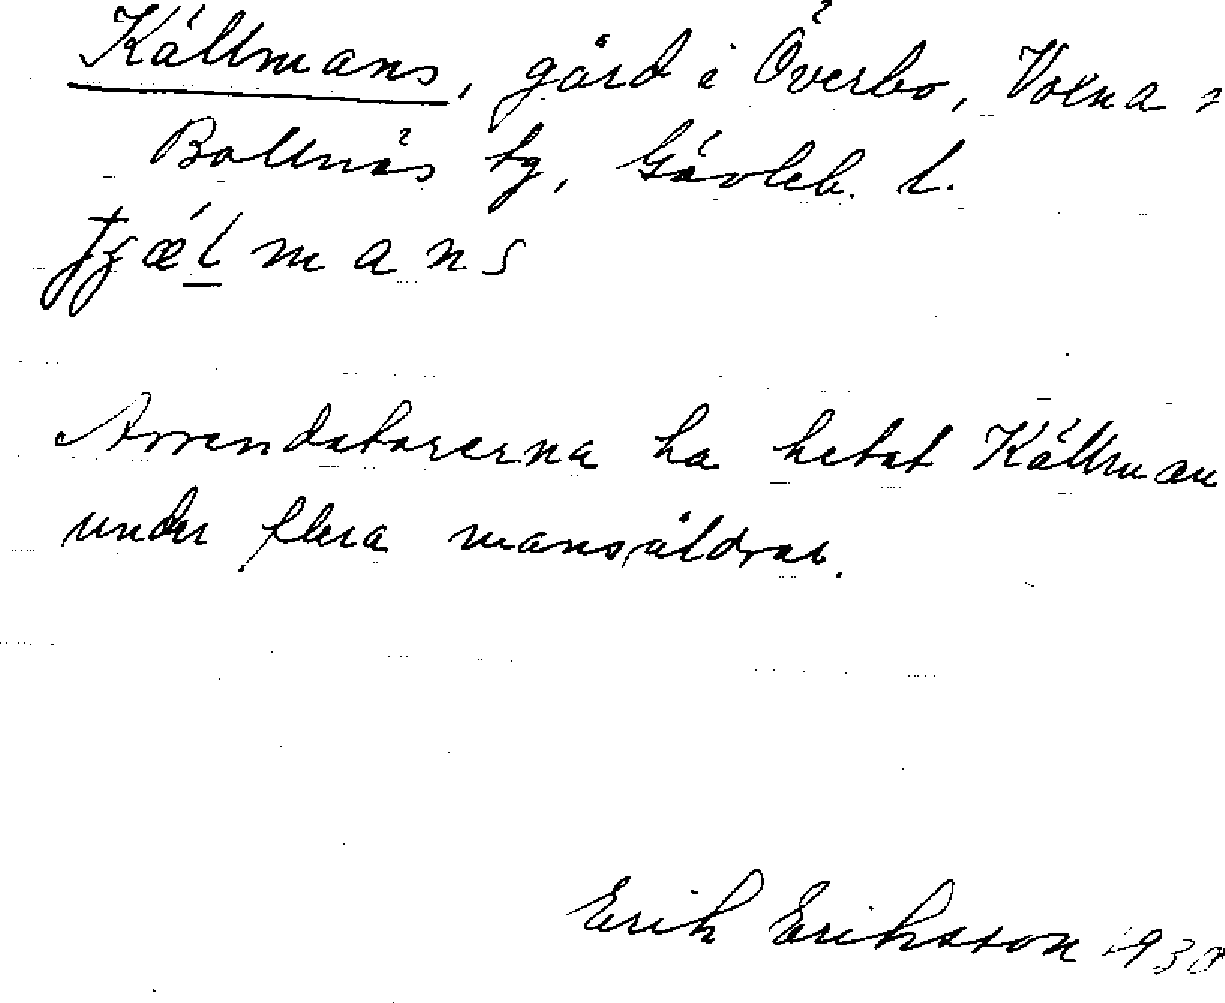 Källmans, gård i Överbo, Voxna s
Bollnäs tg, Gävleb. l.
mans
Arrendatorerna ha hetat Källman
under flera mansåldrar.
Erik Eriksson 1930